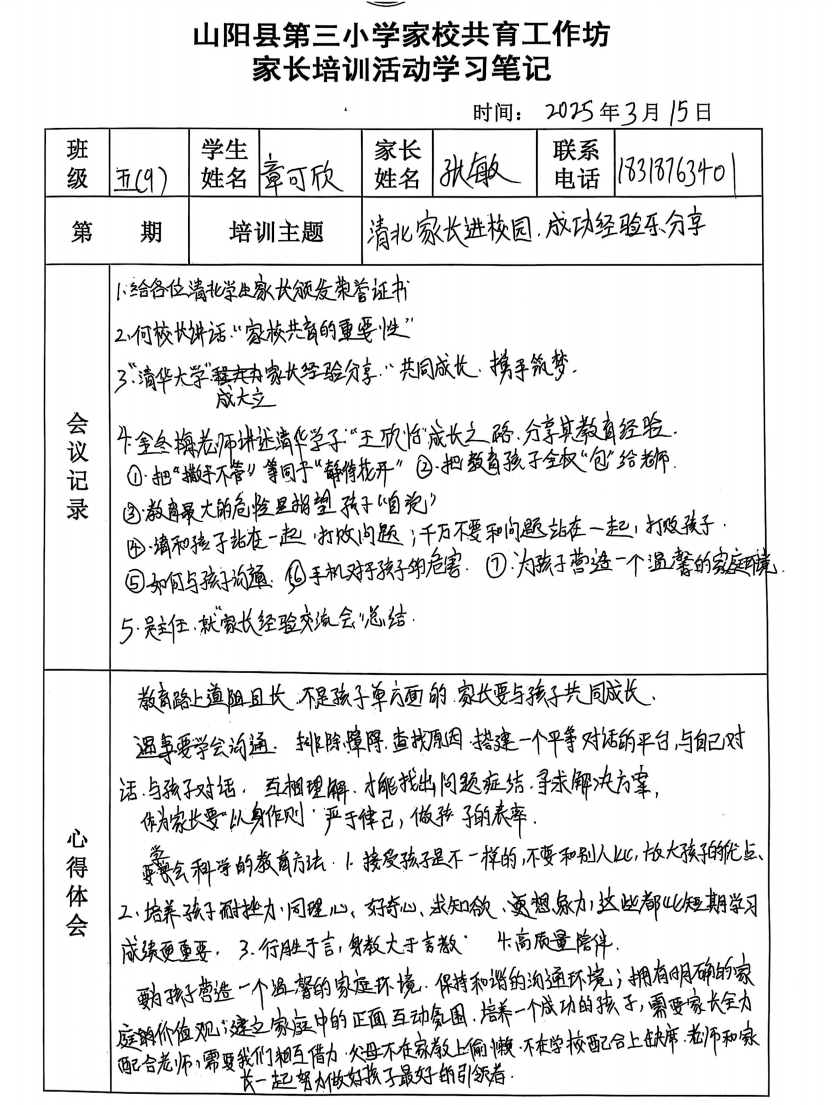 山阳县第三小学家校共育工作坊
家长培训活动学习笔记
时间： 2025年3月15日
班级 五(9) 学生姓名 章可欣 家长姓名 张敏 联系电话 18318763401
第 期 培训主题 清北家长进校园.成功经验乐分享
会议记录
1.给各位清北学生家长颁发荣誉证书
2.何校长讲话:“家校共育的重要性”
3.“清华大学”家长经验分享.“共同成长.携手筑梦.
成大立
4.金冬梅老师讲述清华学子“王欣怡”成长之路.分享其教育经验.
①.把“撒手不管”等同于“静待花开” ②.把教育孩子全权“包”给老师.
③.教育最大的危险是指望孩子“自觉”
④.请和孩子站在一起,打败问题；千万不要和问题站在一起,打败孩子.
⑤如何与孩子沟通. ⑥手机对于孩子的危害. ⑦.为孩子营造一个温馨的家庭环境.
5.吴主任.就“家长经验交流会”总结.
心得体会
教育路上道阻且长.不是孩子单方面的.家长要与孩子共同成长、
遇事要学会沟通.排除障碍.查找原因.搭建一个平等对话的平台,与自己对
话.与孩子对话.互相理解.才能找出问题症结.寻求解决方案,
作为家长要“以身作则”严于律己,做孩子的表率.
要学会科学的教育方法.1.接受孩子是不一样的,不要和别人比,放大孩子的优点、
2.培养孩子耐挫力.同理心、好奇心、求知欲、要想象力,这些都比短期学习
成绩更重要. 3.行胜于言,身教大于言教. 4.高质量陪伴.
要为孩子营造一个温馨的家庭环境.保持和谐的沟通环境；拥有明确的家
庭的价值观；建立家庭中的正面互动氛围.培养一个成功的孩子,需要家长全力
配合老师,需要我们相互借力.父母不在家教上偷懒.不在学校配合上缺席.老师和家
长一起努力做好孩子最好的引领者.